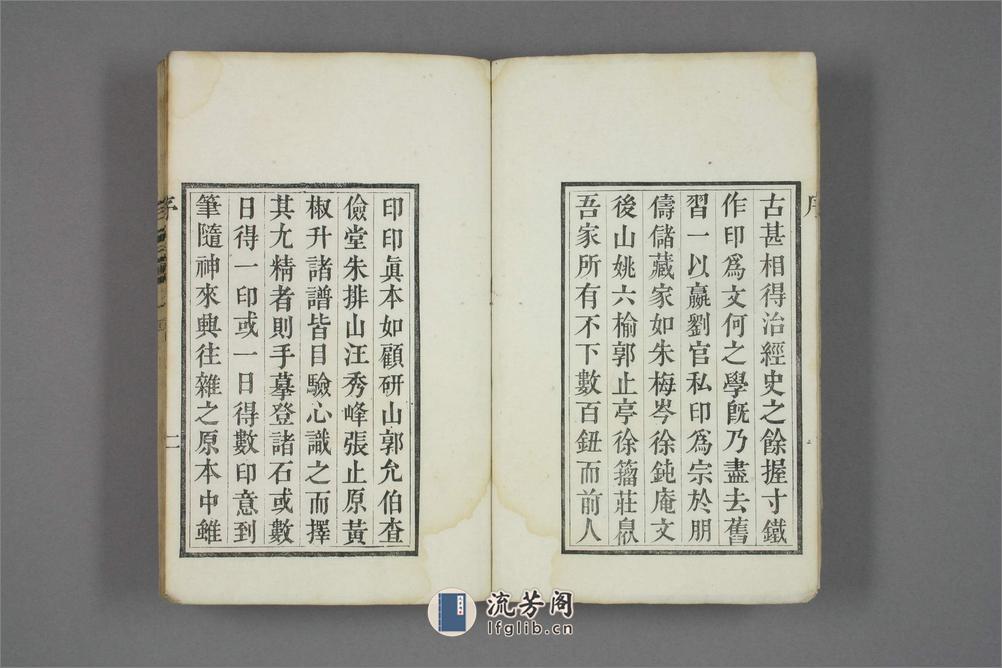 古甚相得治經史之餘握寸鐵
作印爲文何之學旣乃盡去舊
習一以嬴劉官私印爲宗於朋
儔儲藏家如朱梅岑徐鈍庵文
後山姚六榆郭止亭徐籀莊泉
吾家所有不下數百鈕而前人
印印眞本如顧研山郭允伯查
儉堂朱排山汪秀峰張止原黃
椒升諸譜皆目驗心識之而擇
其尤精者則手摹登諸石或數
日得一印或一日得數印意到
筆隨神來興往雜之原本中雖
序
二
流芳阁
lfglib.cn